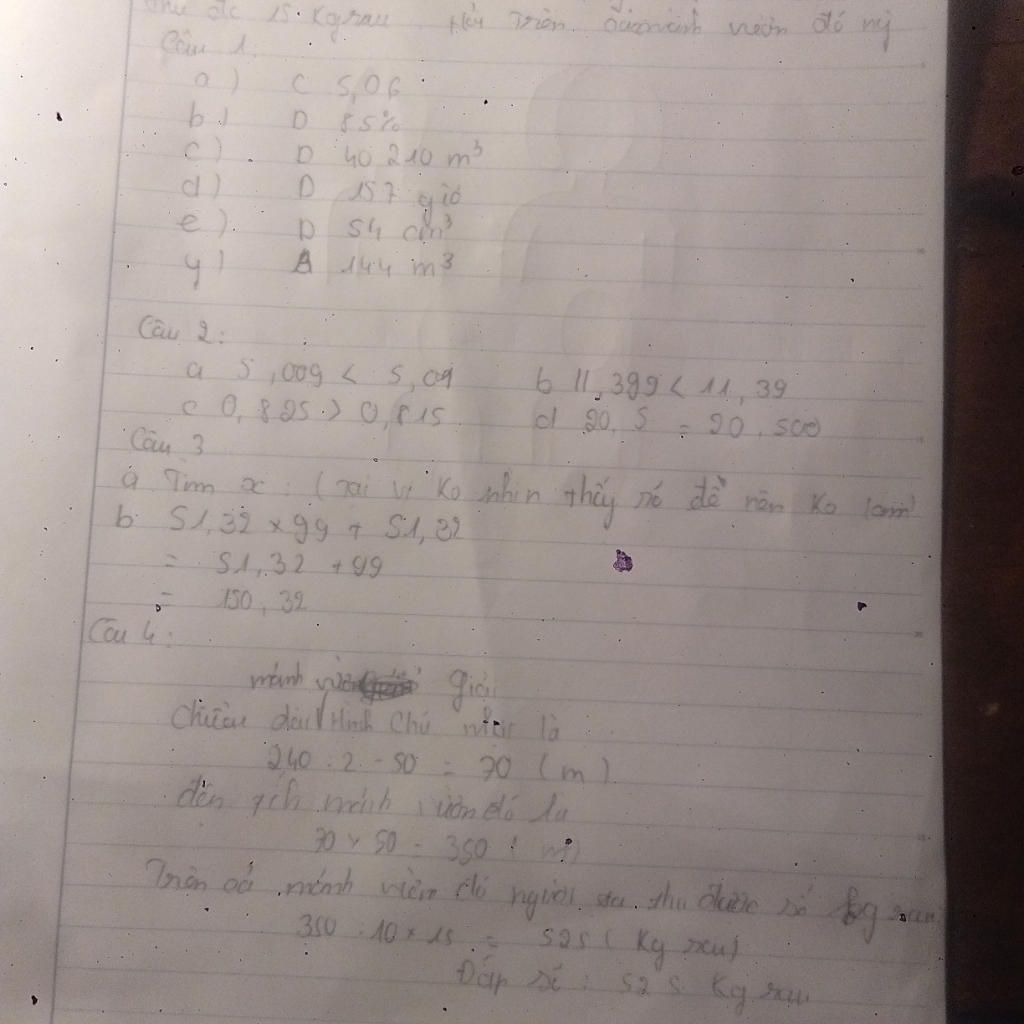 thu đc 15. Kg rau trên mảnh vườn đó
Câu 1.
a) C 5,06
b) D 85%
c). D 40 210 m³
d) D 157 giờ
e). D 54 cm³
y) A 144 m³
Câu 2:
a 5,009 < 5,09 b 11,399 < 11,39
c 0,825 > 0,815 d 20,5 = 20.500
Câu 3
a Tìm x : ( vì Ko nhìn thấy số đề nên Ko làm
b 51,32 × 99 + 51,32
= 51,32 + 99
= 150,32
Câu 4:
Giải
mảnh vườn
Chiều dài Hình Chữ nhật là
240 : 2 - 50 = 70 (m)
mảnh vườn đó là
70 × 50 = 350 ( m)
Trên cả mảnh vườn đó người ta thu được số kg rau
350 : 10 × 15 = 525 ( Kg rau)
Đáp số : 525 Kg rau